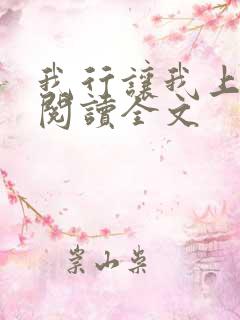 我行讓我上
閱讀全文
崇山吳